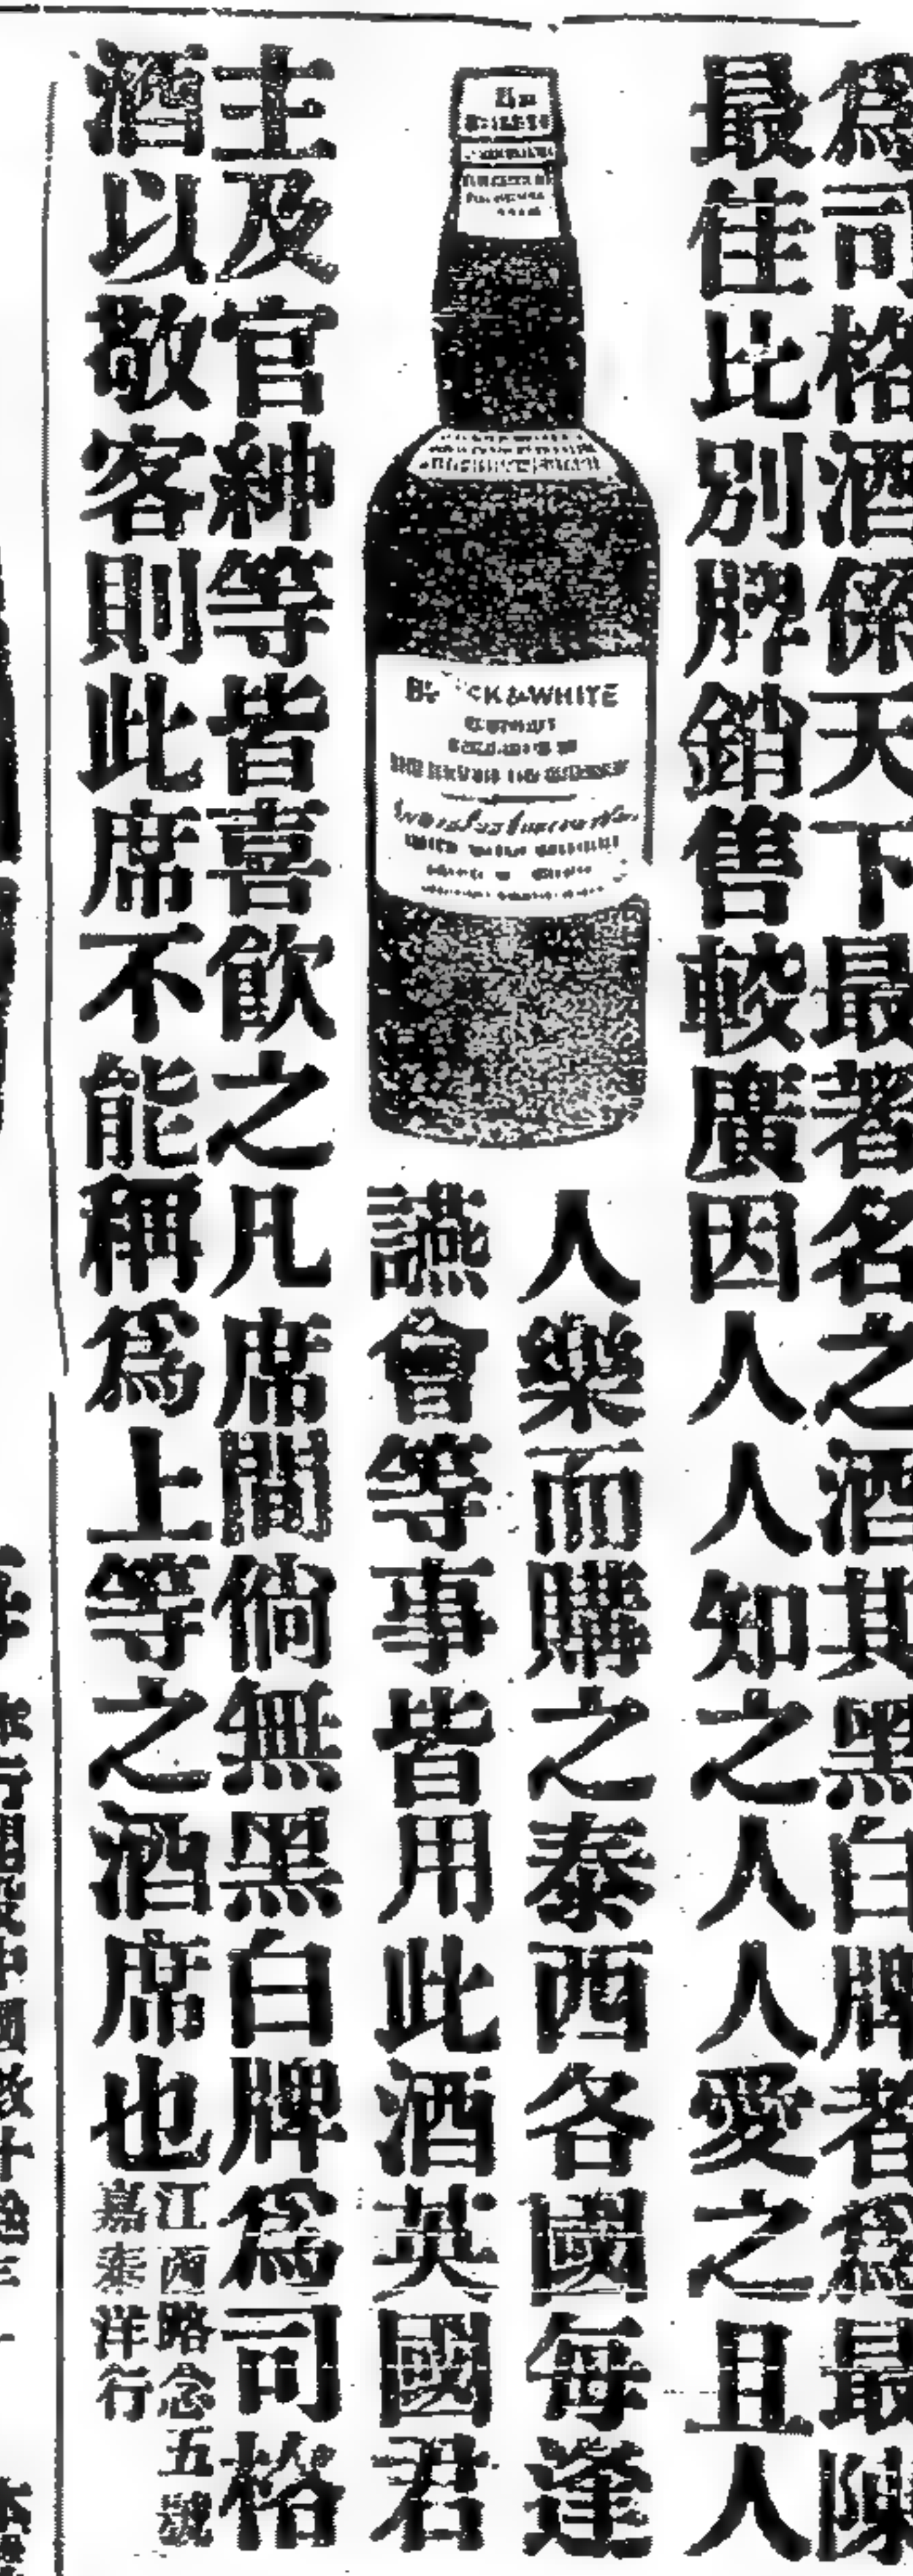 爲司格酒係天下最著名之酒其黑白牌者爲最陳
最佳比別牌銷售較廣因人人知之人人愛之且人
人樂而購之泰西各國每逢
讌會等事皆用此酒英國君
主及官紳等皆喜飲之凡席間倘無黑白牌爲司格
酒以敬客則此席不能稱爲上等之酒席也
江西路念五號
嘉泰洋行
&WHITE